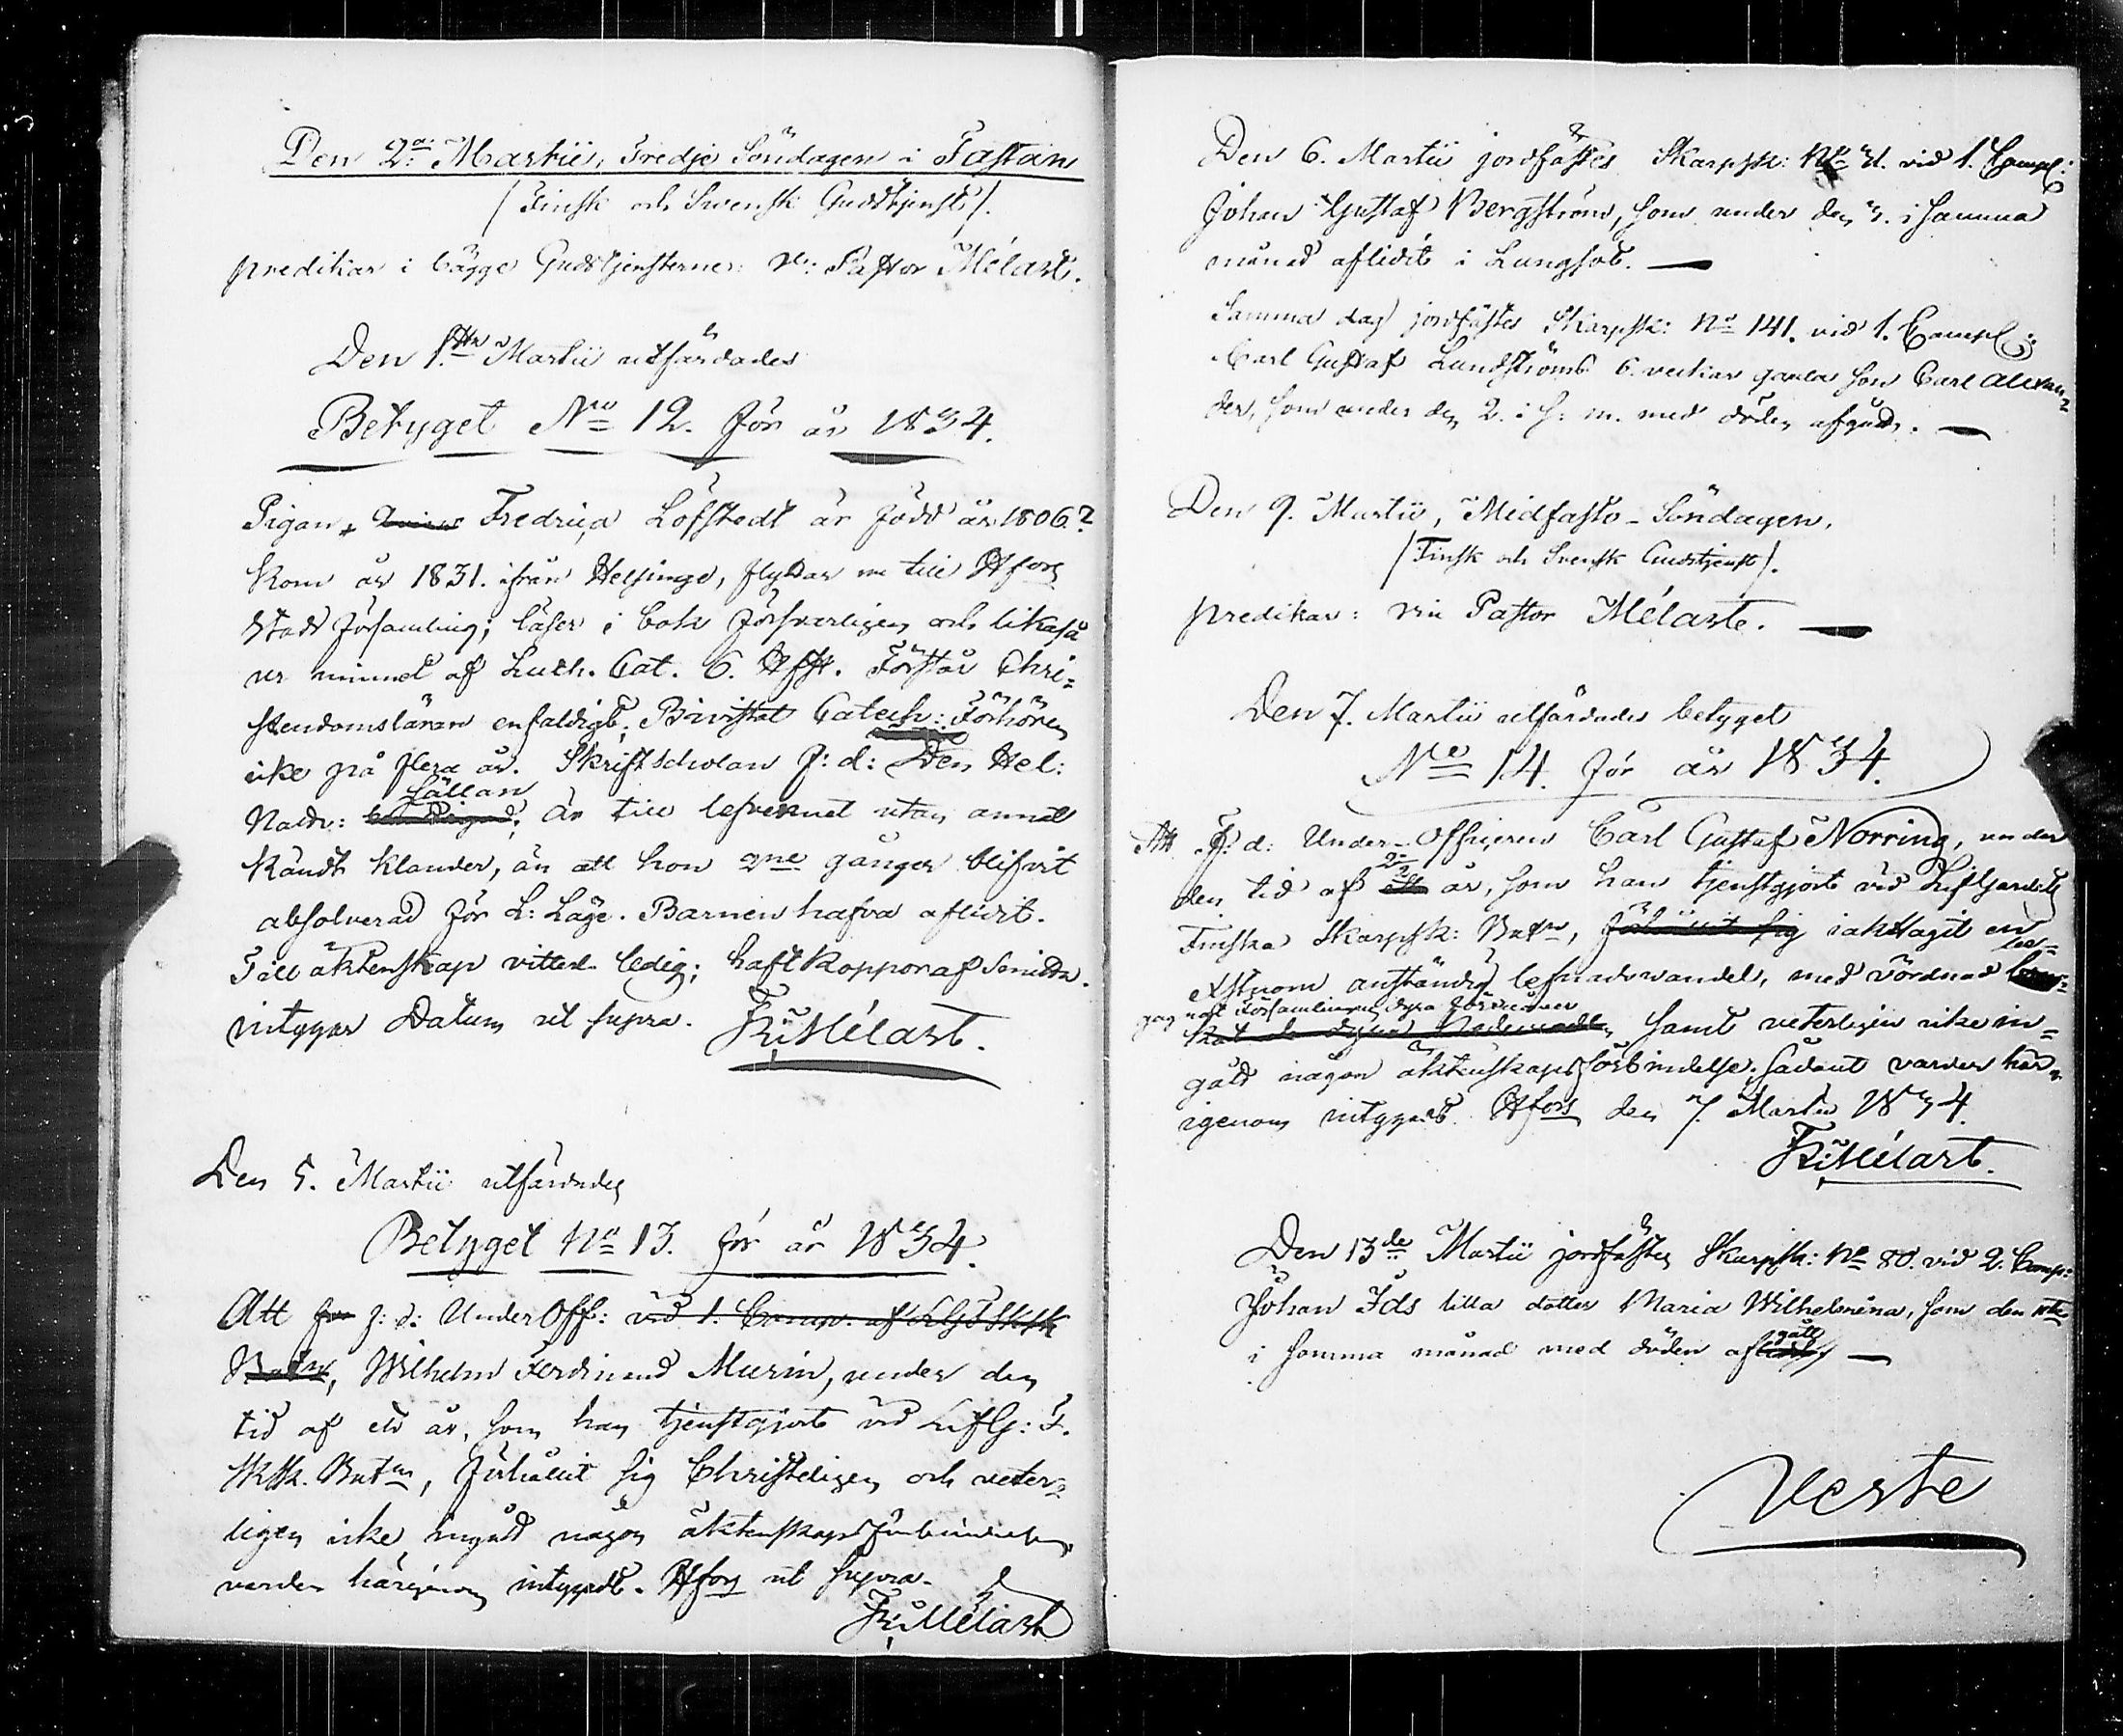 Den 2a: Martii, Tredje Söndagen i Fastan
/Finsk och Swensk Gudstjenst/.
predikar i bägge Gudstjensterne: V: Pastor Mélart.
Den 1ste Martii utfärdades
Betyget No 12. för år 1834.
Pigan Fredrica Löfstedt är född år 1806?
kom år 1831. ifrån Helsinge, flyttar nu till Hfors
Stads församling; läser i bok försvarligen och likaså
ur minnet af Luth. Cat. 6. Hfst. Förstår Chri=
stendomsläran enfaldigt; Bivistat Catech: Förhören
icke på flera år. Skriftscholan f: d: Den Hel:
sällan
Nattv: är till lefvernet utan annat
kändt klander, än att hon 2ne gånger blifvit
absolverad för L: Läge. Barnen hafva aflidit.
Till äktenskap vitterl. ledig; haft koppor af
intygar Datum ut supra. Fr: Mélart.
Den 5. Martii utfärdades
Betyget No 13. för år 1834.
Att f: d: UnderOff: vid 1. Comp: af LGd Sksk
Batn, Wilhelm Ferdinand Murin, under den
tid af ett år, som han tjenstgjort vid LifG: F.
Sksk. Batn, förhållit sig Christeligen och veter=
ligen icke ingått någon äktenskaps förbindelse,
varder härigenom intygadt. Hfors ut supra.
Fr: Mélart
Den 6. Martii jordfästes Skarpsk: No 31. vid 1. Comp:
Johan Gustaf Bergström, som under den 3. i samma
månad aflidit i Lungsot. —
Samma dag jordfästes Skarpsk: No 141. vid 1. Comp:
Carl Gustaf Lundströms 6. veckor gamla son Carl Alexan=
der, som under den 2. i s: m. med döden afgått. —
Den 9. Martii, Midfasto-Söndagen.
/Finsk och Svensk Gudstjenst/.
predikar: Vice Pastor Mélart. —
Den 7. Martii utfärdades betyget
No 14. för år 1834.
Att F: d: Under-Officeren Carl Gustaf Norring, under
2:
den tid af ett år, som han tjenstgjort vid Lifgardets
Finska Skarpsk: Batn, förhållit sig iakttagit en
utinom anständig lefnadsvandel, med vördnad
gag nat Församlingens dyra förmåner
samt veterligen icke in=
gått någon äktenskaps förbindelse; sådant varder här=
igenom intygadt. Hfors den 7. Martii 1834.
Fr: Mélart.
Den 13de Martii jordfästes Skarpsk: No 80. vid 2. Comp:
Johan Ids lilla dotter Maria Wilhelmina, som den
gått
i samma månad med döden af —
Verte